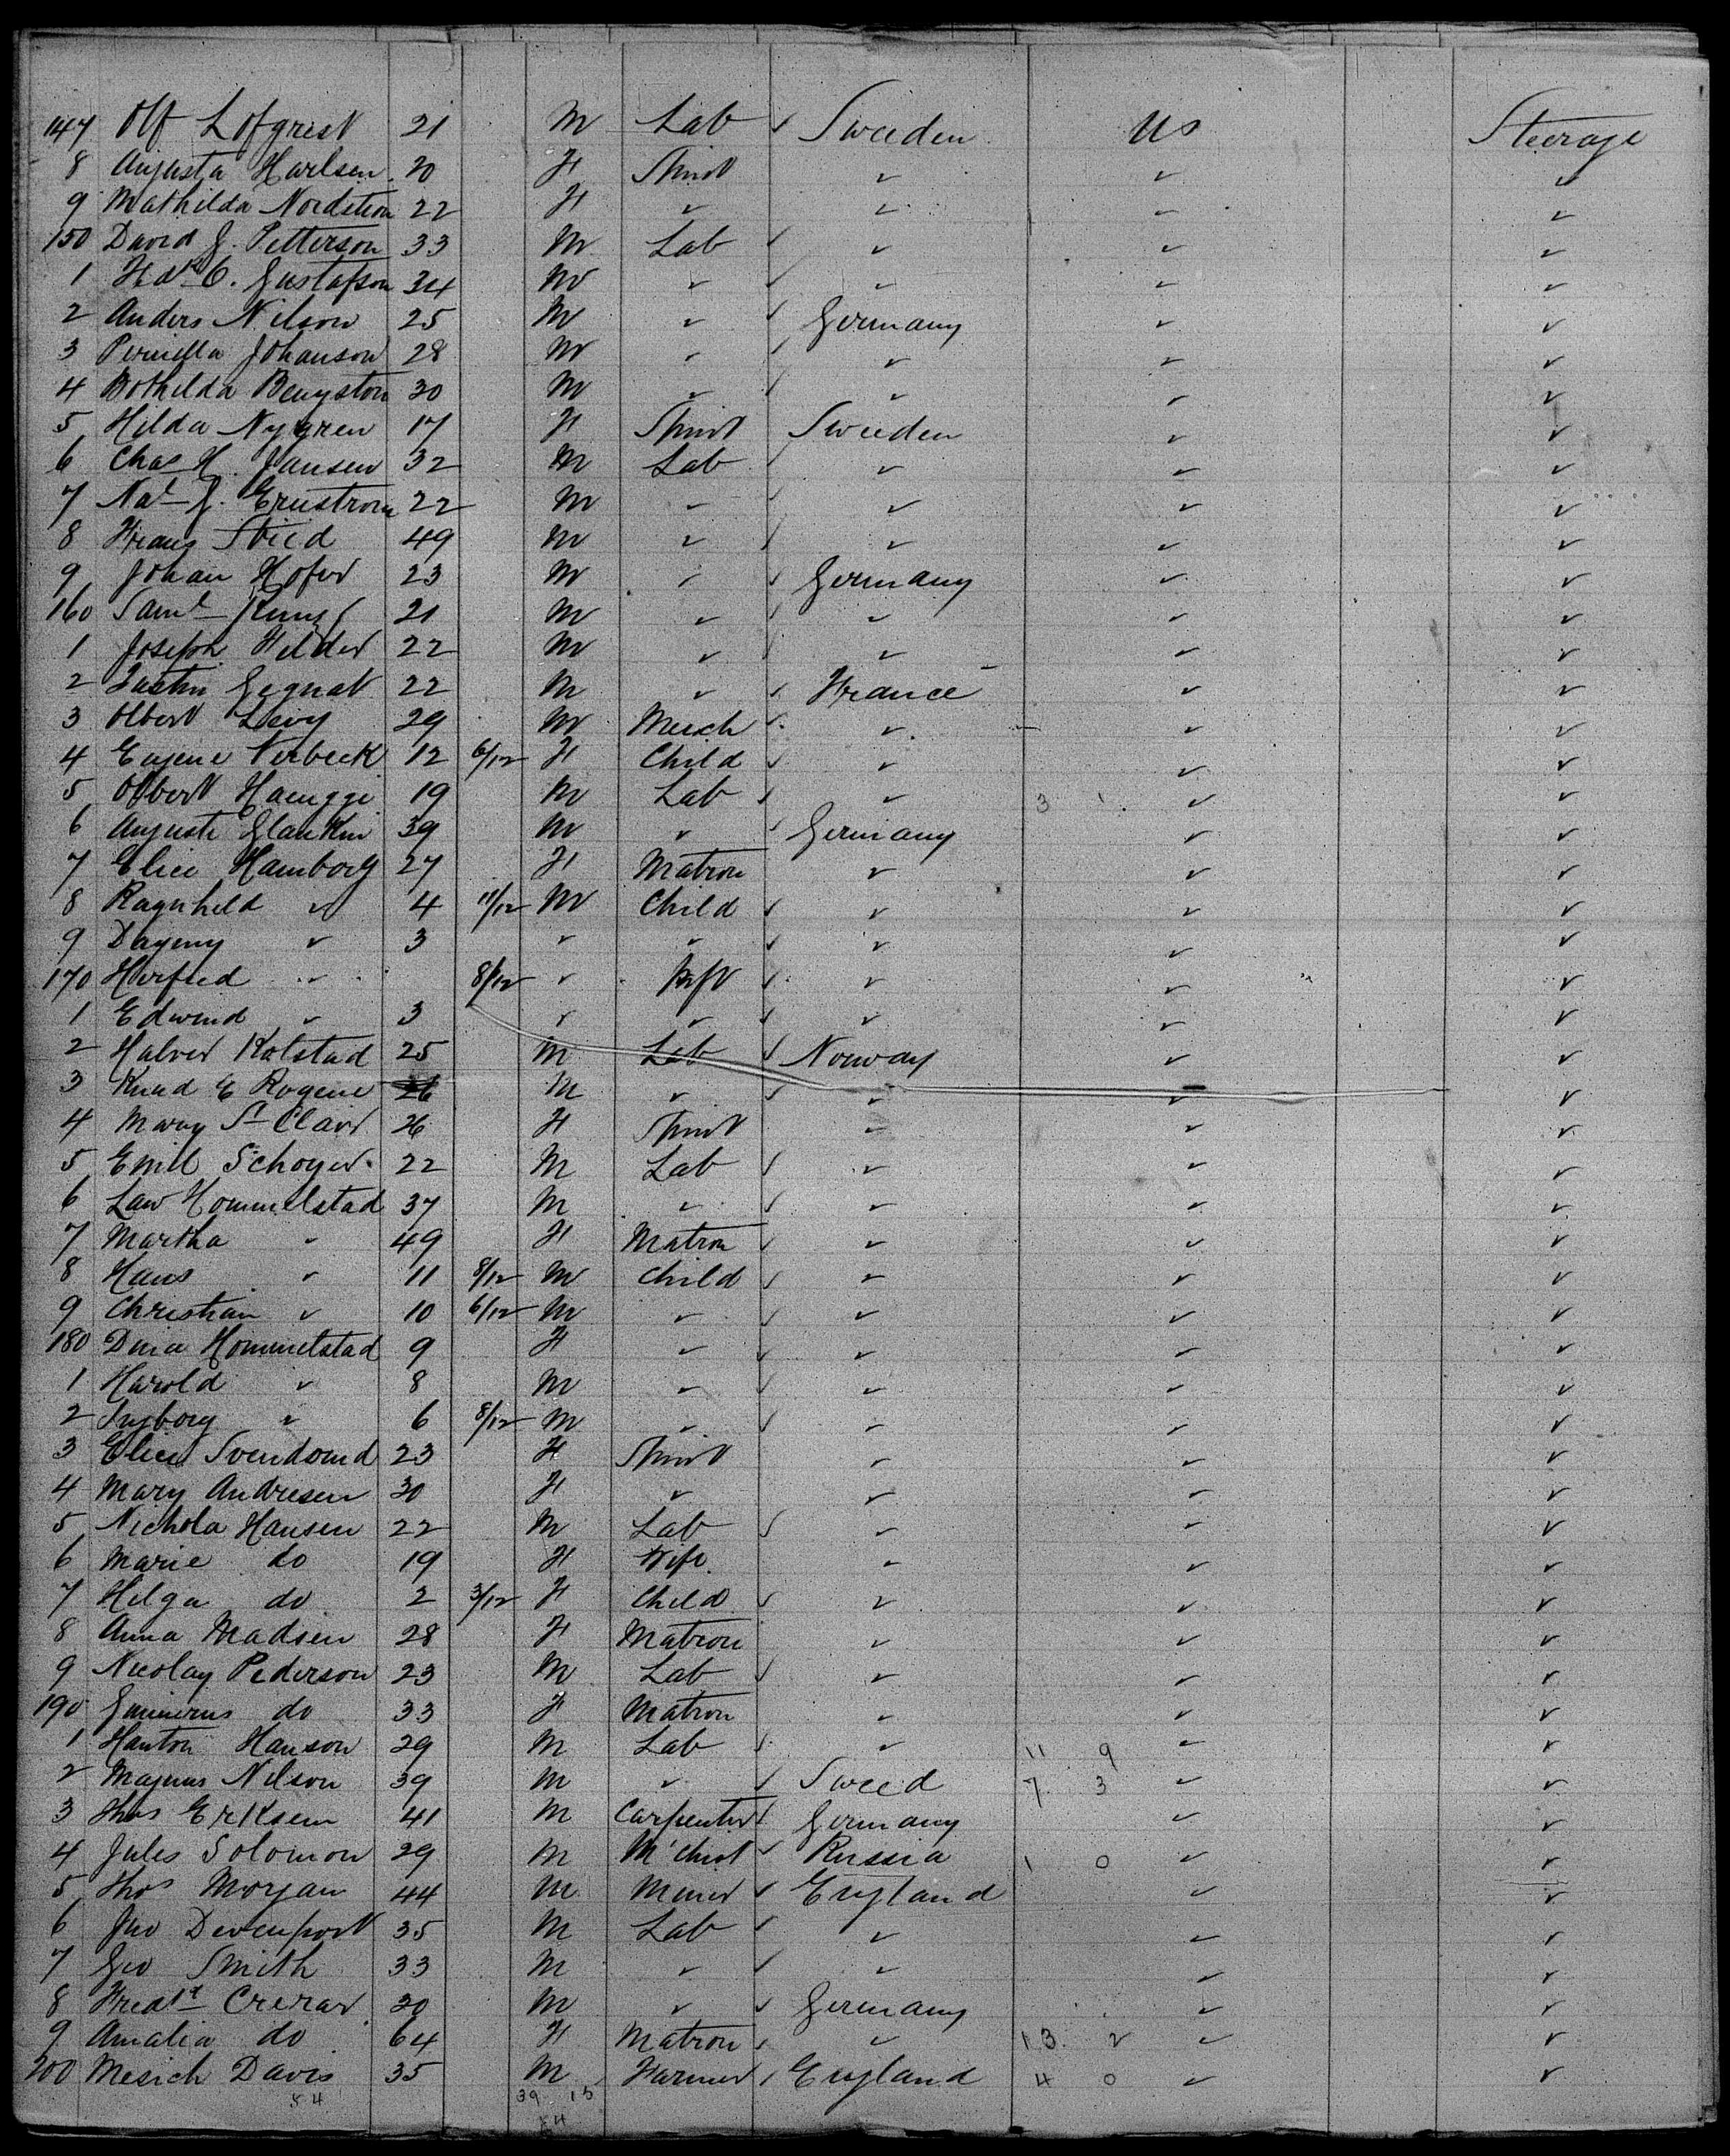 147 Olf Lofgrist 21 M Lab ✓ Sweden US Steerage
8 Augusta Karlsen 20 F Spinst ✓ ✓ ✓
9 Mathilda Nordstrom 22 F ✓ ✓ ✓ ✓
150 David J. Petterson 33 M Lab ✓ ✓ ✓ ✓
1 C. Gustafson 34 M ✓ ✓ ✓ ✓ ✓
2 Anders Nilson 25 M ✓ ✓ Germany ✓ ✓
3 Pernella Johanson 28 M ✓ ✓ ✓ ✓ ✓
4 Bothilda Bengston 30 M ✓ ✓ ✓ ✓ ✓
5 Hilda Nygren 17 F Spinst Sweden ✓ ✓
6 Chas H. Jansen 32 M Lab ✓ ✓ ✓ ✓
7 J. Ernstrom 22 M ✓ ✓ ✓ ✓ ✓
8 Frans 49 M ✓ ✓ ✓ ✓ ✓
9 Johan Hofer 23 M ✓ ✓ Germany ✓ ✓
160 Saml 21 M ✓ ✓ ✓ ✓ ✓
1 Joseph Felder 22 M ✓ ✓ ✓ ✓ ✓
2 Justin Gegnat 22 M ✓ ✓ France ✓ ✓
3 Olbert Levy 29 M Merch ✓ ✓ ✓ ✓
4 Eugene Verbeck 12 6/12 F Child ✓ ✓ ✓ ✓
5 Olbert Haenggi 19 M Lab ✓ ✓ 3 1 ✓ ✓
6 Auguste 39 M ✓ ✓ Germany ✓ ✓
7 Elice Hamborg 27 F Matron ✓ ✓ ✓
8 Ragnheld ✓ 4 11/12 M Child ✓ ✓ ✓ ✓
9 Dagny ✓ 3 ✓ ✓ ✓ ✓ ✓ ✓
170 ✓ 8/12 ✓ Inft ✓ ✓ ✓ ✓
1 Edwind ✓ 3 ✓ ✓ ✓ ✓ ✓ ✓
2 Halver Kolstad 25 M Lab ✓ Norway ✓ ✓
3 Knud E Rogene 26 M ✓ ✓ ✓ ✓ ✓
4 Mary St Clair 26 F Spinst ✓ ✓ ✓
5 Emil Schoyer 22 M Lab ✓ ✓ ✓ ✓
6 Law Hommelstad 37 M ✓ ✓ ✓ ✓ ✓
7 Martha ✓ 49 F Matron ✓ ✓ ✓ ✓
8 Hans ✓ 11 8/12 M Child ✓ ✓ ✓ ✓
9 Christian ✓ 10 6/12 M ✓ ✓ ✓ ✓ ✓
180 Dina Hommelstad 9 F ✓ ✓ ✓ ✓ ✓
1 Harold ✓ 8 M ✓ ✓ ✓ ✓ ✓
2 Ingborg ✓ 6 8/12 M ✓ ✓ ✓ ✓ ✓
3 Elise 23 F Spinst ✓ ✓ ✓
4 Mary Andresen 30 F ✓ ✓ ✓ ✓
5 Nichola Hansen 22 M Lab ✓ ✓ ✓ ✓
6 Marie do 19 F Wife ✓ ✓ ✓
7 Helga do 2 3/12 F Child ✓ ✓ ✓ ✓
8 Anna Madsen 28 F Matron ✓ ✓ ✓
9 Nicolay Pederson 23 M Lab ✓ ✓ ✓ ✓
190 do 33 F Matron ✓ ✓ ✓
1 Hanton Hanson 29 M Lab ✓ ✓ 11 9 ✓ ✓
2 Magnus Nilson 39 M ✓ ✓ Sweed 7 3 ✓ ✓
3 Thos Erksen 41 M Carpenter ✓ Germany ✓ ✓
4 Jules Solomon 29 M M'chnt ✓ Russia 1 0 ✓ ✓
5 Thos Morgan 44 M Miner ✓ England ✓ ✓
6 Jno Devenport 35 M Lab ✓ ✓ ✓ ✓
7 Geo Smith 33 M ✓ ✓ ✓ ✓ ✓
8 Fredk Crerar 30 M ✓ ✓ Germany ✓ ✓
9 Amalia do 64 F Matron ✓ ✓ 13 2 ✓ ✓
200 Mesich Davis 35 M Farmer ✓ England 4 0 ✓ ✓
54 39 15
54